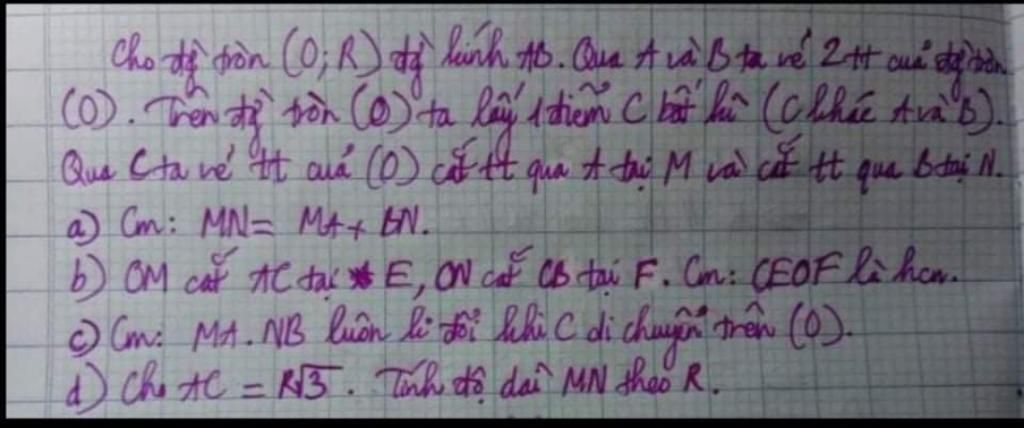 Cho đg̀ tròn (O;R) đg̀ kính AB. Qua A và B ta vẽ 2 tt của đg̀ tròn
(O). Trên đg̀ tròn (O) ta lấy 1 điểm C bất kì (C khác A và B).
Qua C ta vẽ tt của (O) cắt tt qua A tại M và cắt tt qua B tại N.
a) Cm: MN = MA + BN.
b) OM cắt AC tại E, ON cắt CB tại F. Cm: CEOF là hcn.
c) Cm: MA. NB luôn k đổi khi C di chuyển trên (O).
d) Cho AC = R√3. Tính độ dài MN theo R.